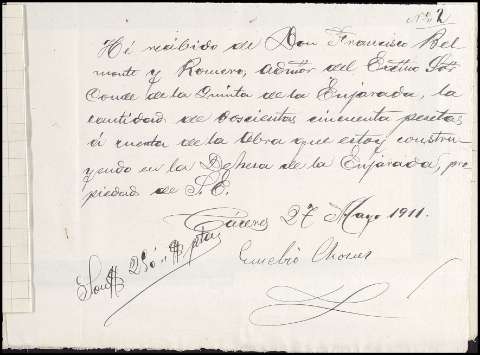 Nº 2
He recibido de Don Francisco Bel
monte y Romero, admor del Exctmo Sor
Conde de la Quinta de la Enjarada, la
cantidad de doscientas cincuenta pesetas
á cuenta de la Obra que estoy constru
yendo en la Dehesa de la Enjarada, pro
piedad de S.E.
Cáceres 27 Mayo 1911.
Son 250 ptas
Eusebio